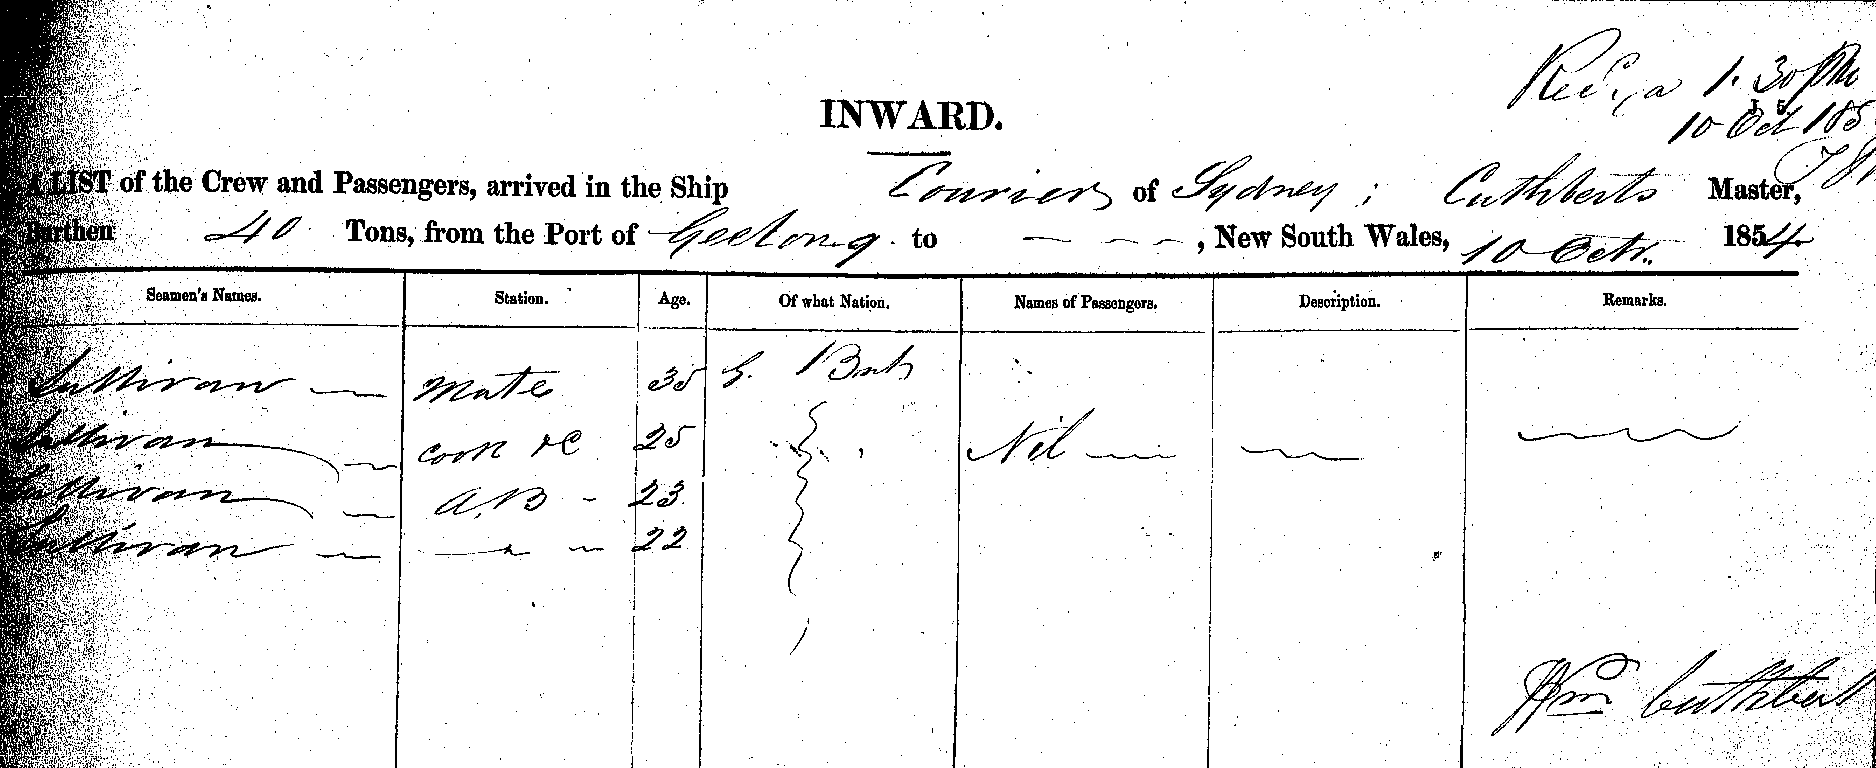 Recd a 1.30 PM
10 Oct 185
INWARD.
A LIST of the Crew and Passengers, arrived in the Ship Courier of Sydney; Cuthberts Master,
Burthen 40 Tons, from the Port of Geelong to — — — , New South Wales, 10 Octr. 1854
Seamen's Names. Station. Age. Of what Nation. Names of Passengers. Description. Remarks.
Sullivan — Mate 35 G. Brit
Sullivan — Cook &c 25 Nil — — —
Sullivan — A.B - 23
Sullivan — — " — 22
Wm Cuthbert